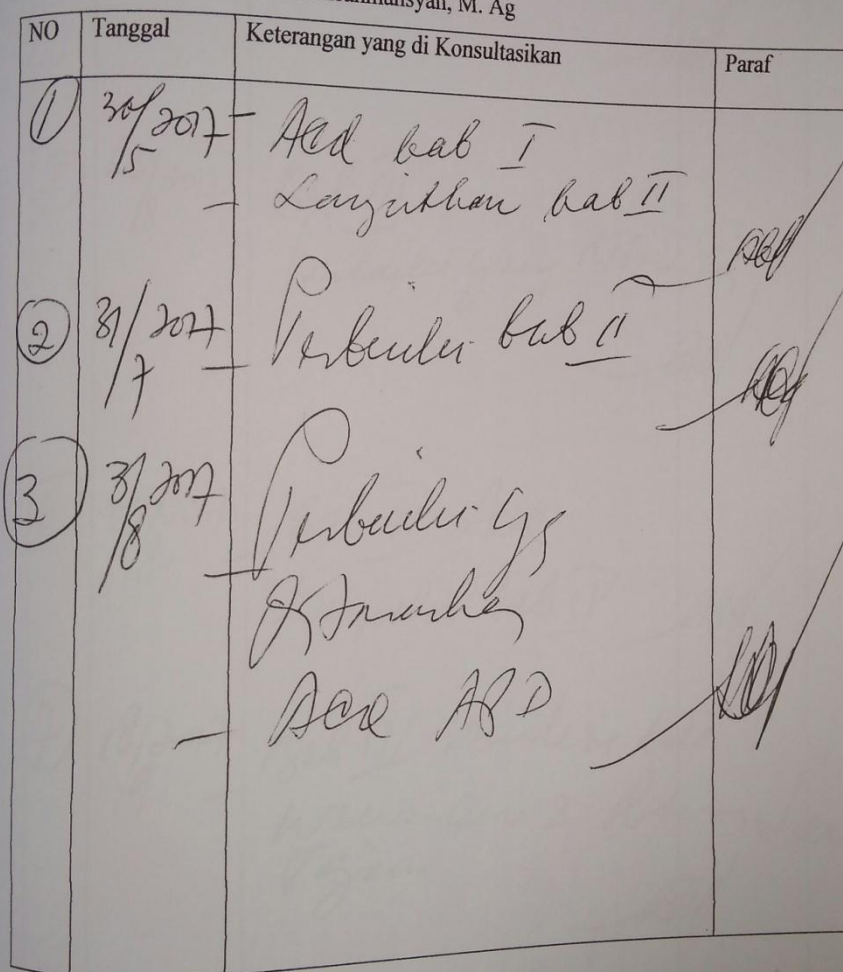 M. Ag
NO Tanggal Keterangan yang di Konsultasikan Paraf
1 30/5 2017 - Acc bab I
- Lanjutkan bab II
2 31/7 2017 - Perbaiki bab II
3 31/8 2017 - Perbaiki
- Acc APD